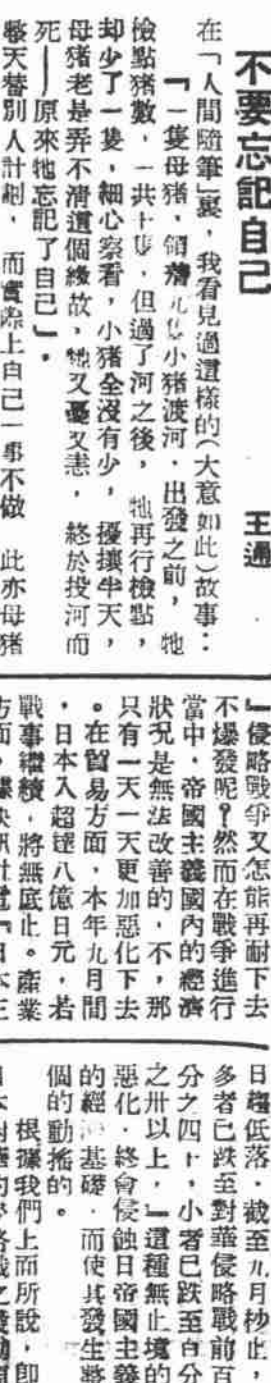 不要忘記自己
王過
在「人間隨筆」裏，我看見過這樣的（大意如此）故事：
『一隻母猪，領着九隻小猪渡河．出發之前，牠
檢點猪數，一共十隻．但過了河之後，牠再行檢點，
却少了一隻，細心察看，小猪全沒有少，擾攘半天，
母猪老是弄不清這個緣故，牠又憂又恚，終於投河而
死——原來牠忘記了自己』．
整天替別人計劃，而實際上自己一事不做 此亦母猪
』侵略戰爭又怎能再耐下去
不爆發呢？然而在戰爭進行
當中．帝國主義國內的經濟
狀况是無法改善的，不，那
只有一天一天更加惡化下去
。在貿易方面，本年九月間
，日本入超達八億日元，若
戰事繼續，將無底止。產業
日趨低落．截至九月杪止，
多者已跌至對華侵略戰前百
分之四十，小者已跌至百分
之卅以上，』這種無止境的
惡化．終會侵蝕日帝國主義
的經濟基礎．而使其發生整
個的動搖的。
根據我們上面所說，即